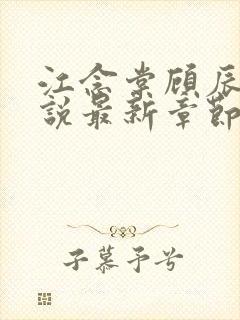 江念棠顾辰
说最新章節
子慕予兮